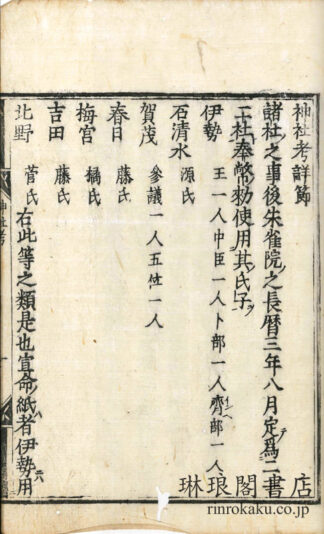 神社考詳節
諸社之事後朱雀院之長暦三年八月定爲二
二社奉幣勅使用其氏子
伊勢 王一人中臣一人卜部一人齊部一人
石清水 源氏
賀茂 參議一人五位一人
春日 藤氏
梅宮 橘氏
吉田 藤氏
北野 菅氏 右此等之類是也宣命紙者伊勢用
神社考
琳琅閣書店
rinrokaku.co.jp